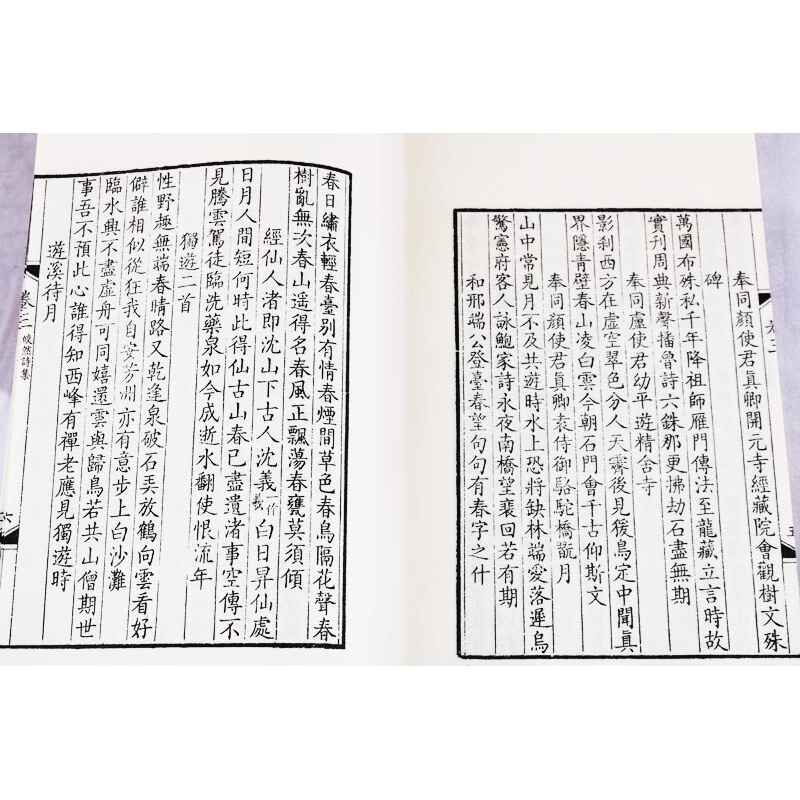 奉同顏使君真卿開元寺經藏院會觀樹文殊
碑
萬國布殊私千年降祖師雁門傳法至龍藏立言時故
實刊周典新聲播魯詩六銖那更拂劫石盡無期
奉同盧使君幼平遊精舍寺
影剎西方在虛空翠色分人天霽後見猨鳥定中聞真
界隱青壁春山凌白雲今朝石門會千古仰斯文
奉同顏使君真卿袁侍御駱駝橋翫月
山中常見月不及共遊時水上恐將缺林端愛落遲烏
驚憲府客人詠鮑家詩永夜南橋望裴回若有期
和邢端公登臺春望句句有春字之什
卷三
五
春日繡衣輕春臺別有情春煙間草色春鳥隔花聲春
樹亂無次春山遥得名春風正飄蕩春甕莫須傾
經仙人渚即沈山下古人沈義一作羲白日昇仙處
日月人間短何時此得仙古山春已盡遺渚事空傳不
見騰雲駕徒臨洗藥泉如今成逝水翻使恨流年
獨遊二首
性野趣無端春晴路又乾逢泉破石弄放鶴向雲看好
僻誰相似從狂我自安芳洲亦有意步上白沙灘
臨水興不盡虛舟可同嬉還雲與歸鳥若共山僧期世
事吾不預此心誰得知西峰有禪老應見獨遊時
遊溪待月
卷三 皎然詩集
六